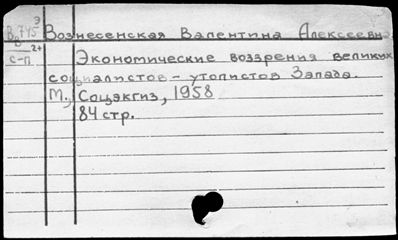 Э
В 745 Вознесенская Валентина Алексеевна
В 2+
с-п Экономические воззрения великих
социалистов - утопистов Запада.
М., Соцэкгиз, 1958
84 стр.